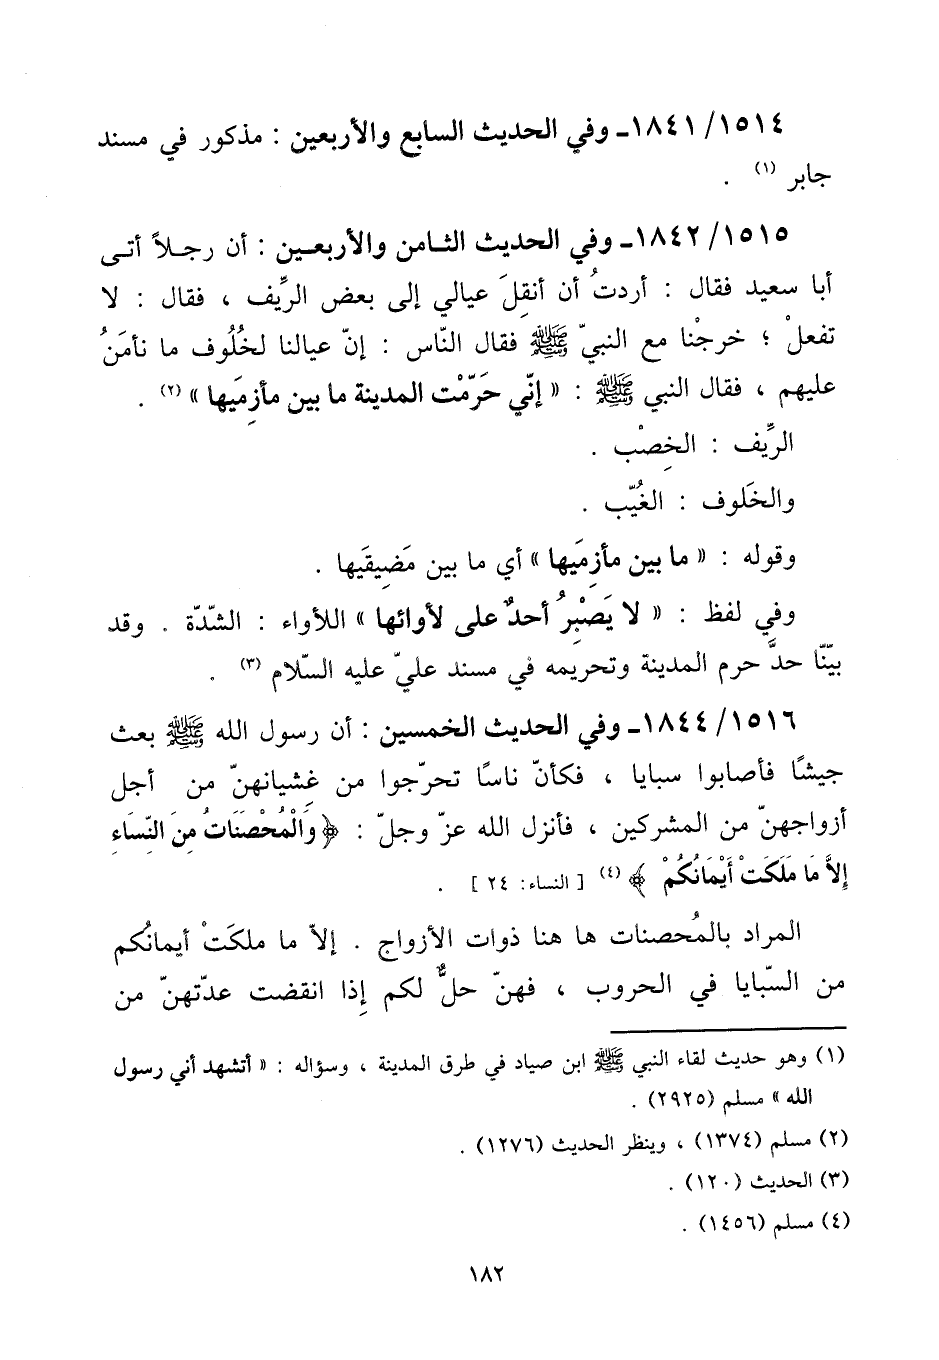 ١٥١٤/ ١٨٤١ـ وفي الحديث السابع والأربعين : مذكور في مسند
جابر (١) .
١٥١٥/ ١٨٤٢ـ وفي الحديث الثـامن والأربعـين : أن رجـلاً أتـى
أبا سعيد فقال : أردتُ أن أنقِلَ عيالي إلى بعض الرِّيف ، فقال : لا
تفعلْ ؛ خرجْنا مع النبيّ ﷺ فقال النّاس : إنّ عيالنا لخُلُوف ما نأمَنُ
عليهم ، فقال النبي ﷺ : « إنّي حَرَّمْت المدينة ما بين مأزِمَيها » (٢) .
الرِّيف : الخِصْب .
والخَلوف : الغُيّب .
وقوله : « ما بين مأزِمَيها » أي ما بين مَضِيقَيها .
وفي لفظ : « لا يَصْبِرُ أحدٌ على لأوائها » اللأواء : الشّدّة . وقد
بيّنّا حدَّ حرم المدينة وتحريمه في مسند عليّ عليه السّلام (٣) .
١٥١٦/ ١٨٤٤ـ وفي الحديث الخمسين : أن رسول الله ﷺ بعث
جيشًا فأصابوا سبايا ، فكأنّ ناسًا تحرّجوا من غِشيانهنّ من أجل
أزواجهنّ من المشركين ، فأنزل الله عزّ وجلّ : ﴿ وَالْمُحْصَنَاتُ مِنَ النِّسَاءِ
إلاَّ مَا مَلَكَتْ أَيْمَانُكُمْ ﴾ (٤) [ النساء: ٢٤ ] .
المراد بالمُحصنات ها هنا ذوات الأزواج . إلاّ ما ملكَتْ أيمانُكم
من السّبايا في الحروب ، فهنّ حلٌّ لكم إِذا انقضت عدّتهنّ من
(١) وهو حديث لقاء النبي ﷺ ابن صياد في طرق المدينة ، وسؤاله : « أتشهد أني رسول
الله » مسلم (٢٩٢٥) .
(٢) مسلم (١٣٧٤) ، وينظر الحديث (١٢٧٦) .
(٣) الحديث (١٢٠) .
(٤) مسلم (١٤٥٦) .
١٨٢